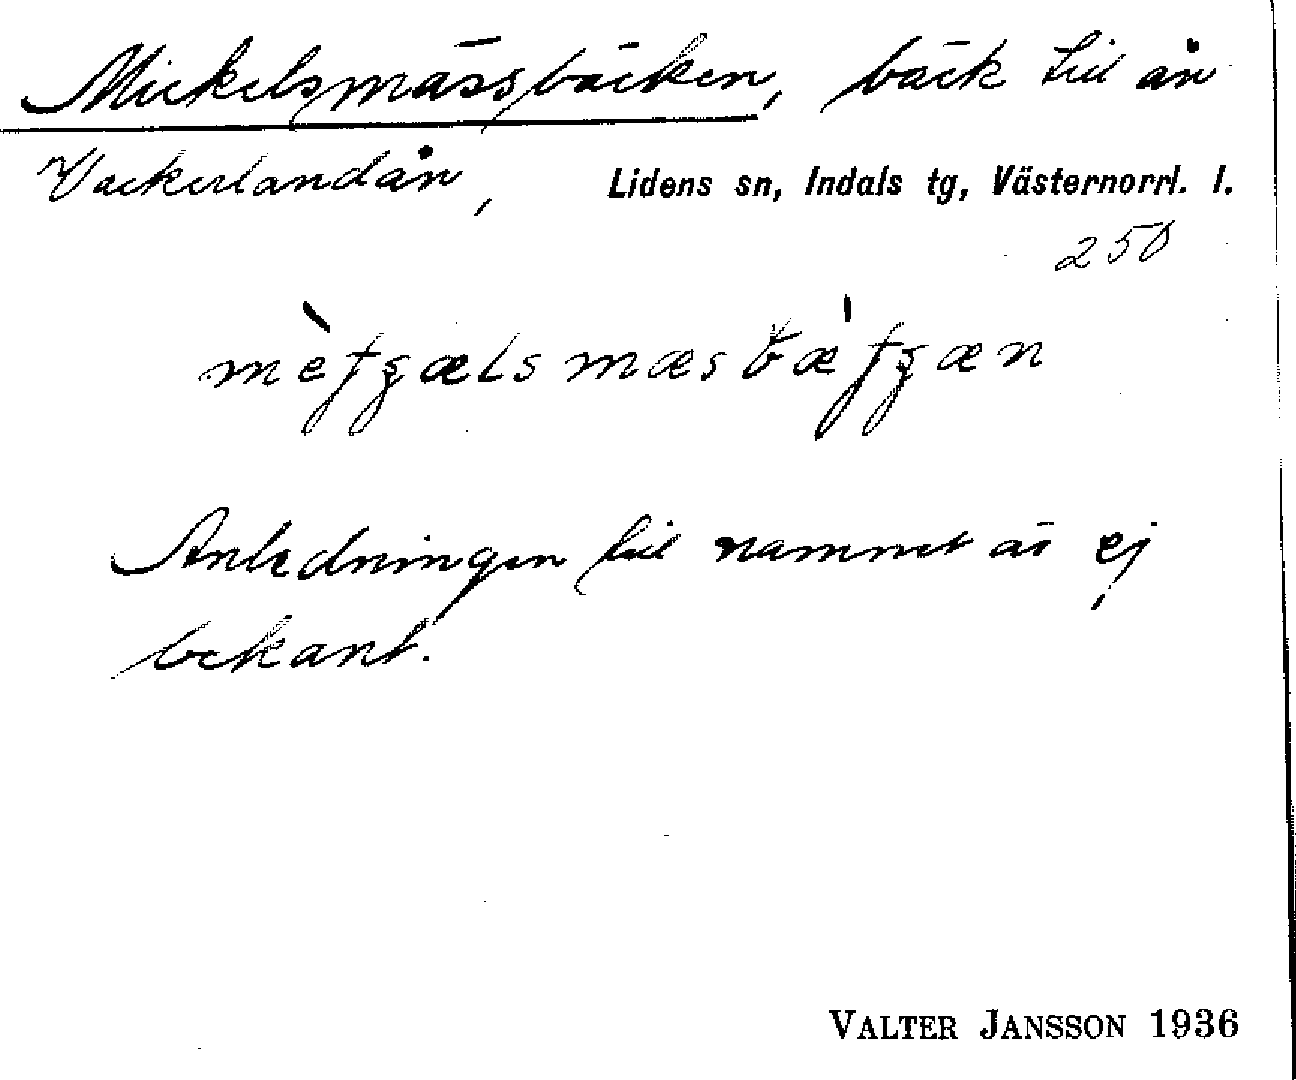 Mickelsmässbäcken, bäck till ån
Vackerlandån, Lidens sn, Indals tg, Västernorrl. l.
250
Anledningen till namnet är ej
bekant.
VALTER JANSSON 1936